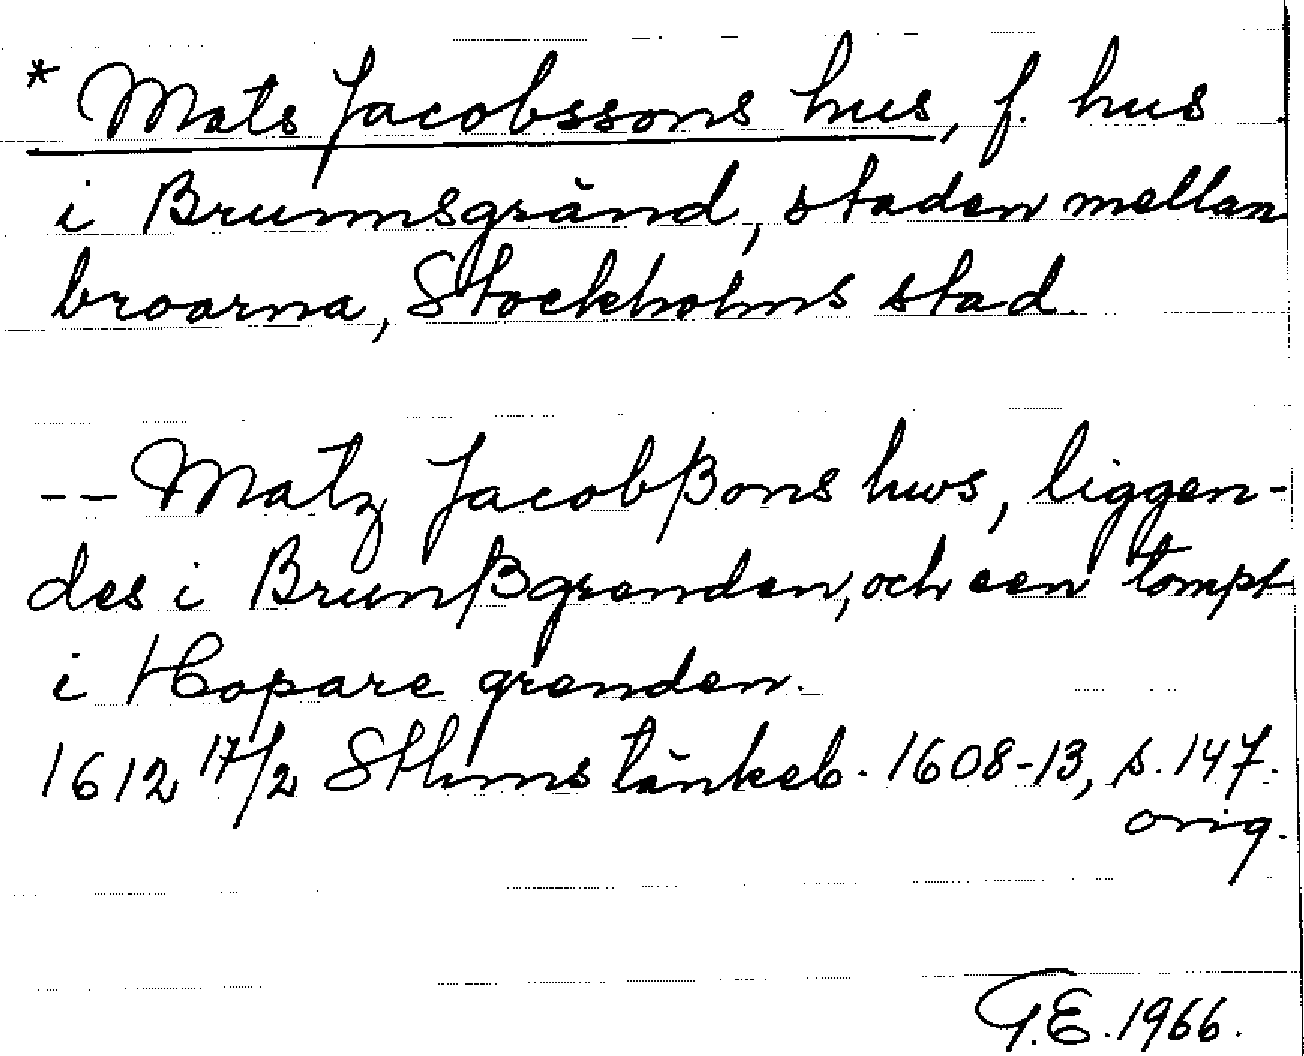 * Mats Jacobssons hus, f. hus
i Brunnsgränd, staden mellan
broarna, Stockholms stad.
-- Matz Jacobßons hws, liggen-
des i Brunßgrenden, och een tompt
i Hopare grenden.
1612 17/2 Sthms tänkeb. 1608-13, s. 147.
orig.
G.E. 1966.